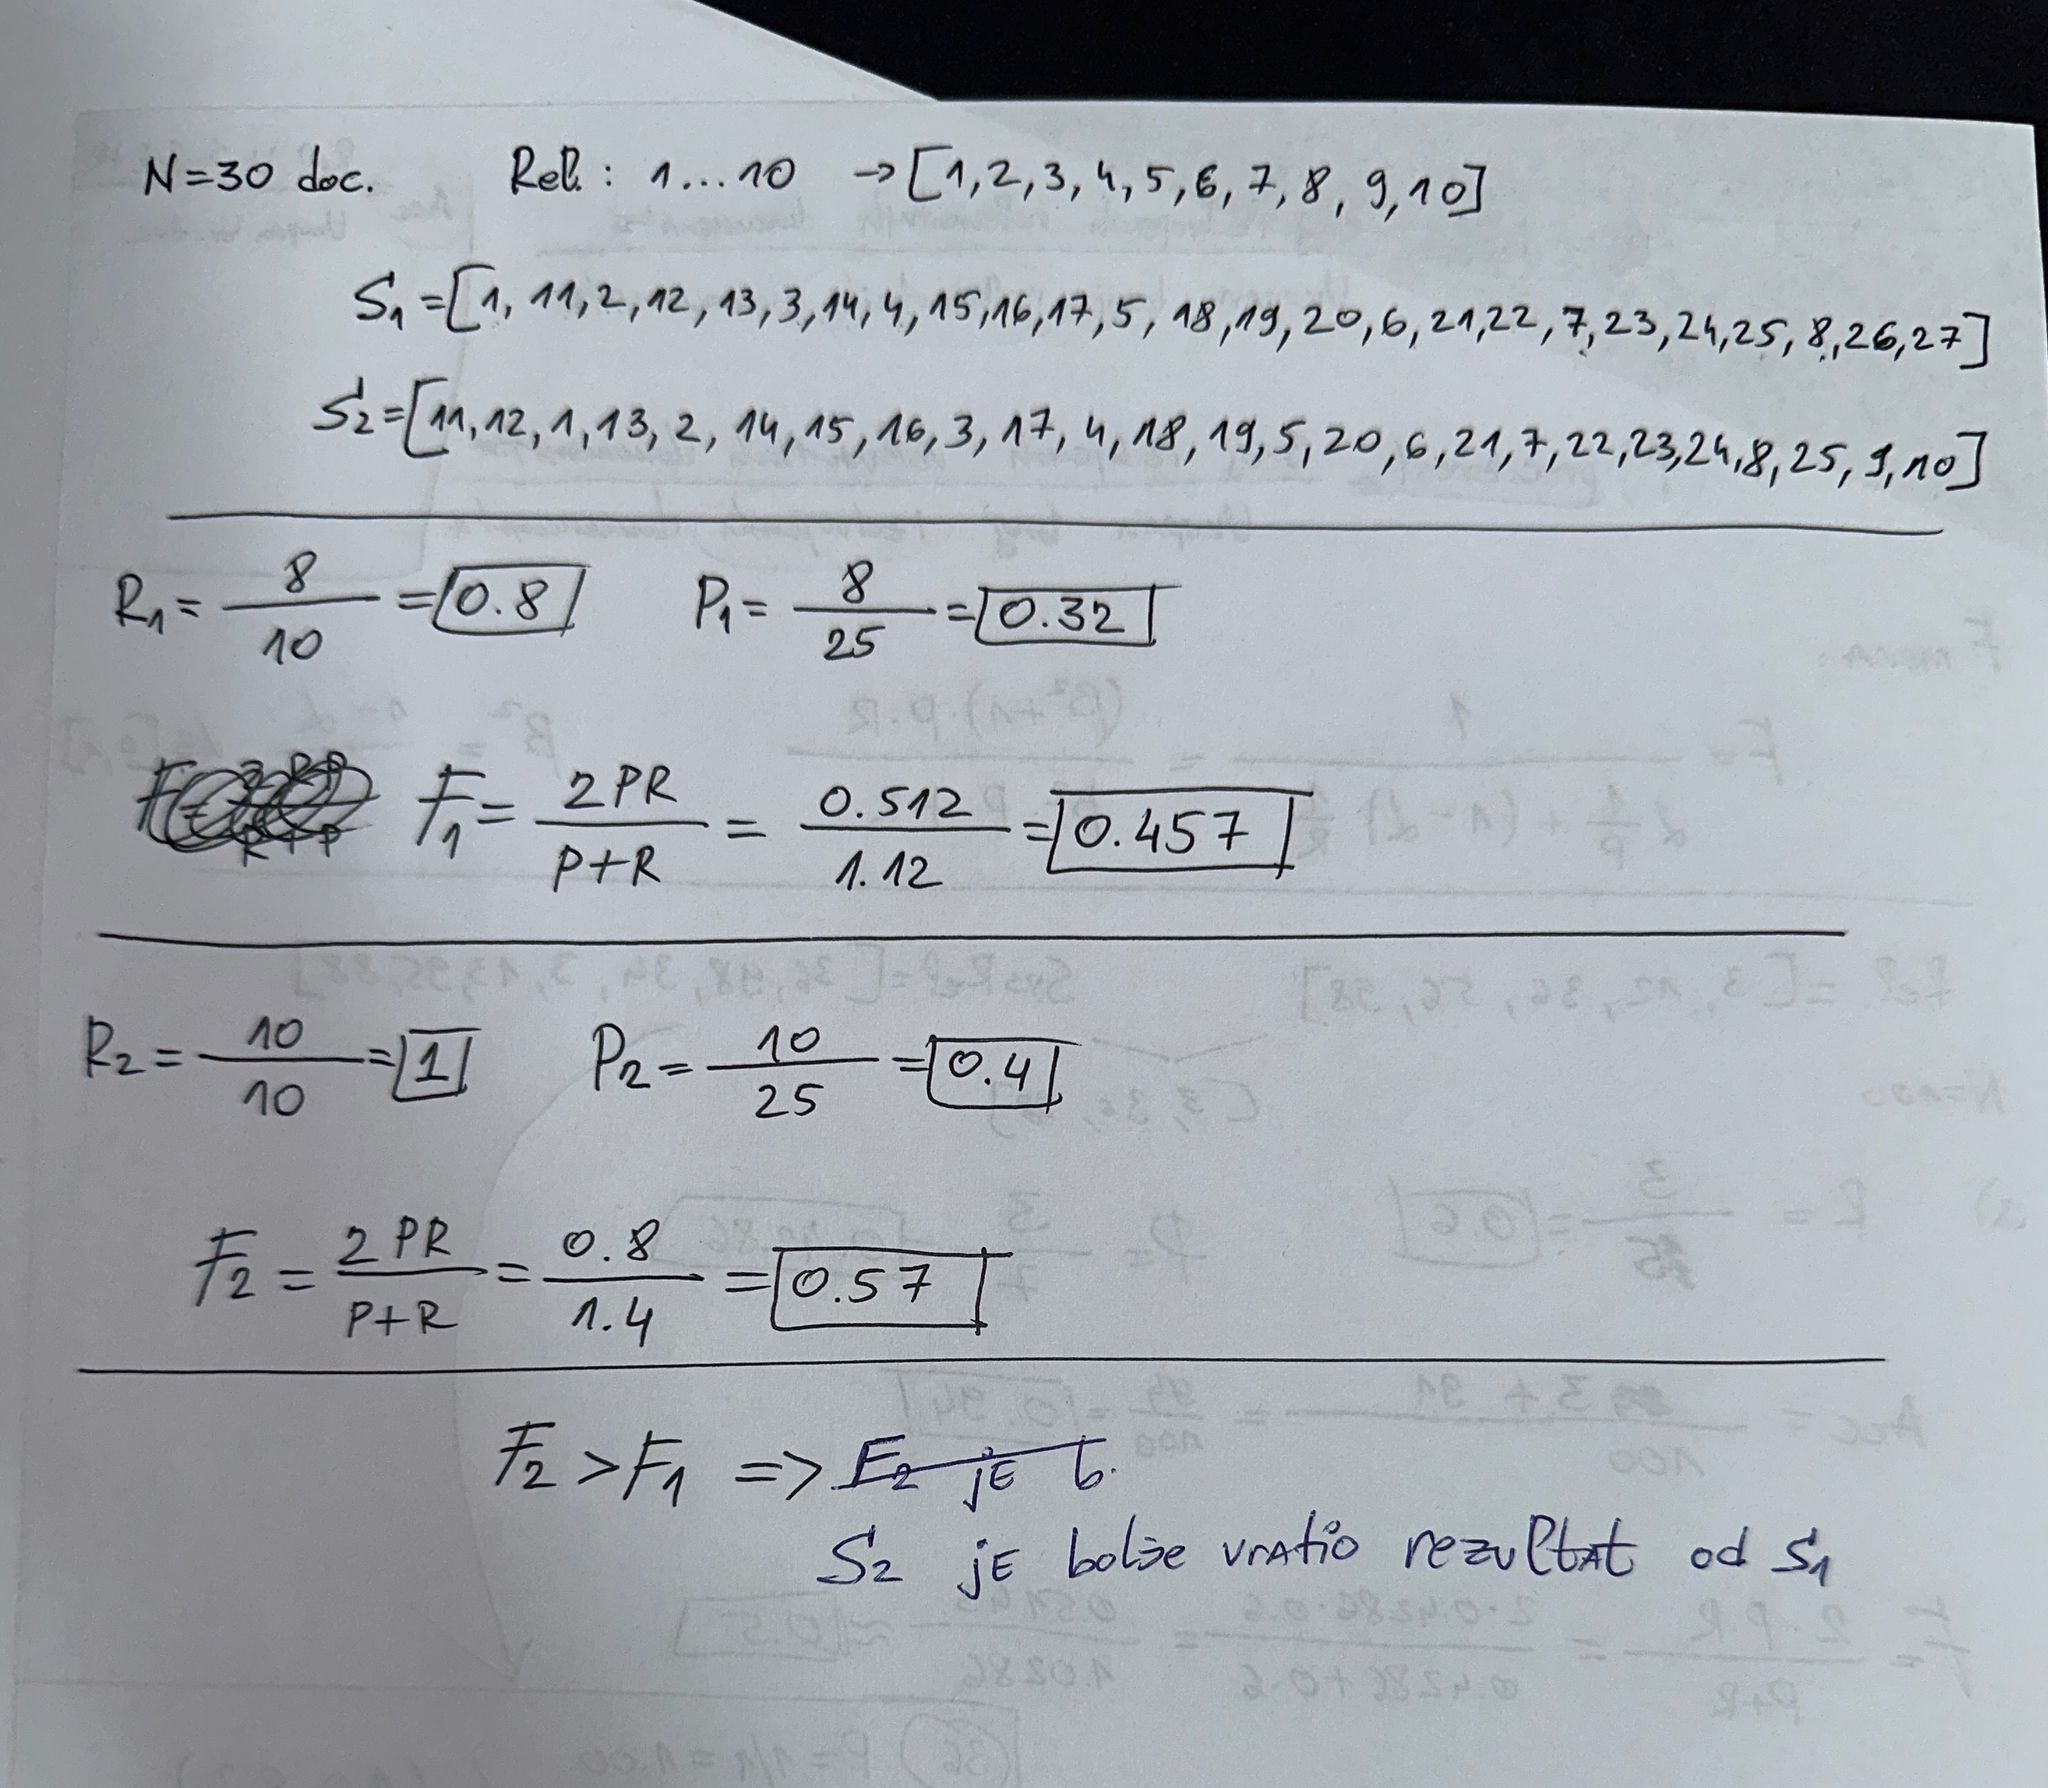 N=30 doc. Rel.: 1...10 → [1,2,3,4,5,6,7,8,9,10]
S1=[1, 11,2,12,13,3,14,4,15,16,17,5,18,19,20,6,21,22,7,23,24,25,8,26,27]
S2=[11,12,1,13,2,14,15,16,3,17,4,18,19,5,20,6,21,7,22,23,24,8,25,9,10]
R1= 8/10 = 0.8 P1= 8/25 = 0.32
F1= 2PR/P+R = 0.512/1.12 = 0.457
R2= 10/10 = 1 P2= 10/25 = 0.4
F2= 2PR/P+R = 0.8/1.4 = 0.57
F2>F1 => F2 jE b.
S2 jE bolje vratio rezultat od S1